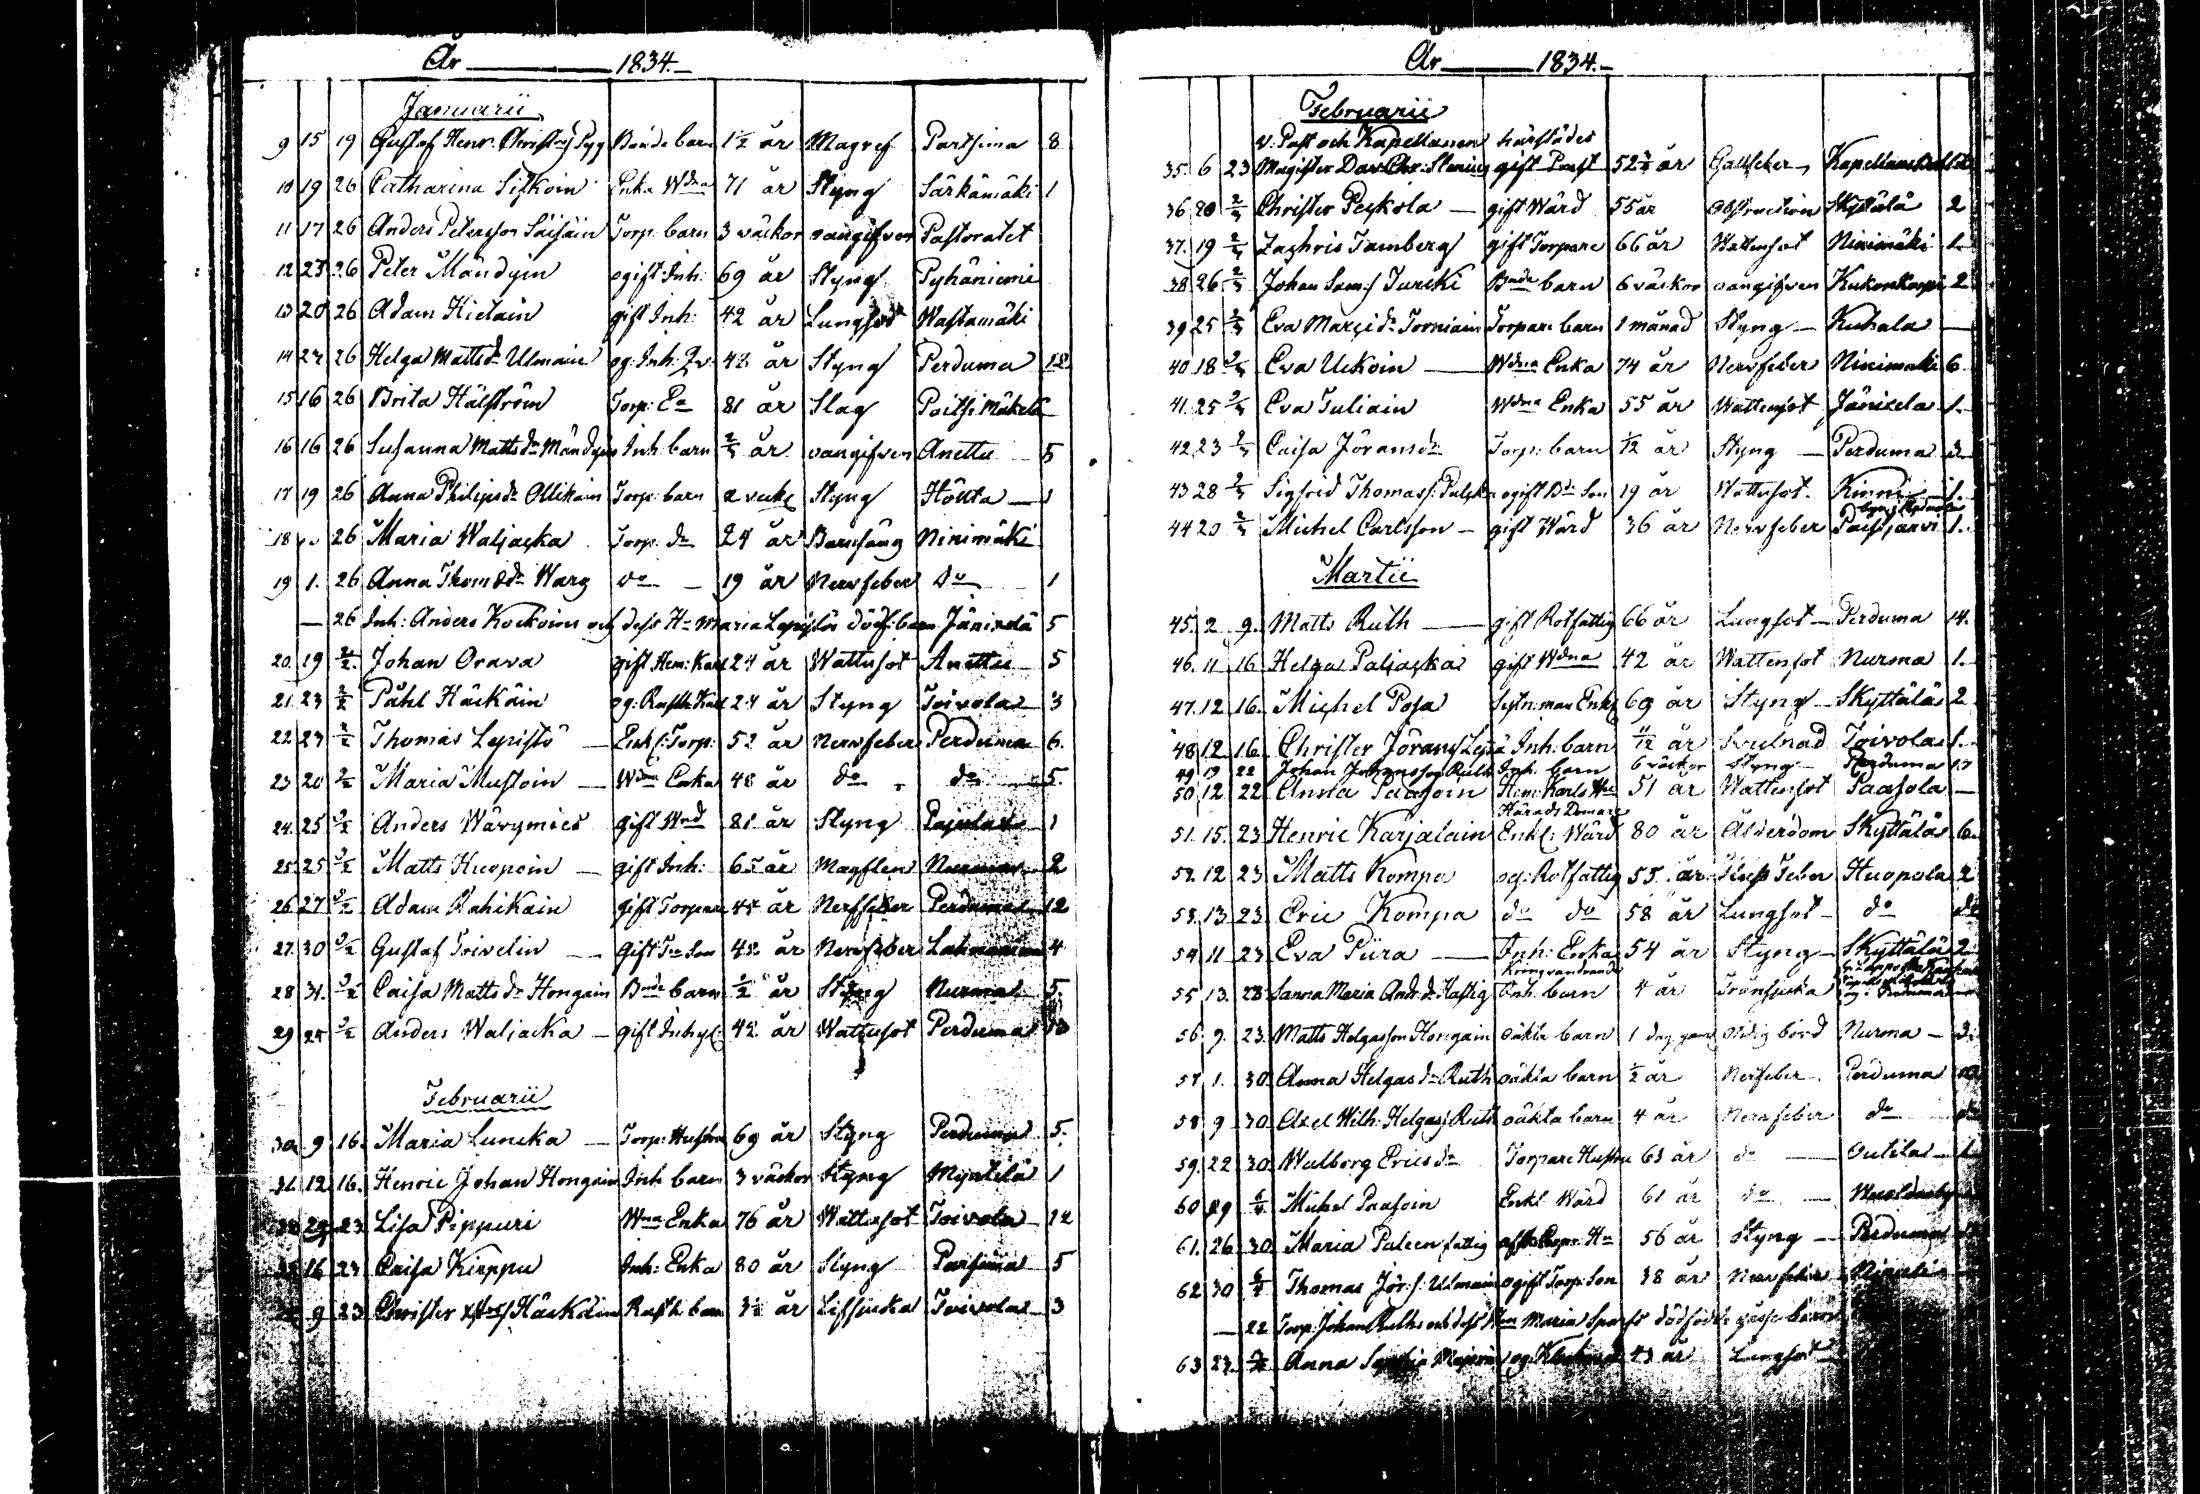 År 1834.
Januarii
9 15 19 Gustaf Henr. Bonde barn 1½ år Magref Partsima 8
10 19 26 Catharina Sifkoin Enka Wdna 71 år Styng Särkämäki 1
11 17 26 Anders Petersson Torp. barn 3 väckor oangifven Pastoratet
12 23 26 Peter Mändyin ogift Inh: 69 år Styng Pyhäniemi
13 20 26 Adam Hietain gift Inh: 42 år Lungsot Wastamäki
14 26 Helga Mattsdr Ulmain og: Inh: 48 år Styng Perduma 12
15 16 26 Brita Hälström Torp: Ea 81 år Slag
16 16 26 Susanna Mattsdr Mändyin Inh barn år oangifven Anettu 5
17 19 26 Anna Philipsdr Ollikain Torp: barn 2 veck Styng Höltta 1
18 26 Maria Waljacka Torp. dr 24 år Barnsäng Ninimäki
19 1. 26 Anna Thomædr Warg do 19 år Nervfeber do 1
— 26 Inh: Anders Kockoinns och dess Ha Maria Lepistös dödf: barn Jänixelä 5
20. 19 2/2. Johan Orava gift Hem: Karl 24 år Wattusot Anettu 5
21. 23 2/2 Påhl Häckäin og: Rusth: Karl 24 år Styng Toivola 3
22 23 2/2 Thomas Lepistö Enkl: Torp: 52 år Nervfeber Perduma 6.
23 20 2/2 Maria Mustoin Wdna Enka 48 år do do 5.
24. 25 2/2 Anders Wärymies gift Wrd 81 år Styng Pajula 1
25 25 2/2 Matts Huopoin gift Inh: 65 år Magplen Nurmaa 2
26 27 2/2 Adam Rahikain gift Torpare 44 år Nerffeber Perduma 12
27. 30 2/2 Gustaf Toivelin Gift Son 42 år Nervfeber 4
28 31. 2/2 Caisa Mattsdr Hongain Bnde barn ½ år Styng Nurmaa 5.
29 24 2/2 Anders Waljacka gift Inhys: 42. år Wattusot Perduma 10
Februarii
30 9 16. Maria Luncka Torp: Hustru 69 år Styng Perduma 5.
31. 12 16. Henric Johan Hongain Inh barn 3 väckor Styng Myntilä 1
23 Lisa Pippuri Wna Enka 76 år Wattusot Toivola 12
16 23 Caisa Kirppu Inh: Enka 80 år Styng Parsima 5
9 23 Christer Häckäin Rusth: barn 3½ år Lifsjuka Toivola 3
År 1834.
Februarii
v. Past och Kapellanen härstädes
35. 6 23 Magister Dav. Chr: Stenius gift Prest 52¾ år Gallfeber
36 20 2/3 Christer Peykola gift Wärd 55 år Obstruction Skyttälä 2
37. 19 2/3 Zachris Tamberg gift Torpare 66 år Wattusot Ninimäki 1.
38 26 2/3 Johan Sam:s Turcki Bnde barn 6 väckor oangifven Kukonkorpi 2
39. 25 2/3 Eva Marcidr Torniain Torpare barn 1 månad Styng Kuhala
40 18 2/3 Eva Uckoin Wdna Enka 74 år Nervfeber Ninimäki 6
41. 25 2/3 Eva Tuliain Wdna Enka 55 år Wattensot Jänixela 1.
42. 23 2/3 Caisa Jöransdr Torp: barn 1/12 år Styng Perduma
43 28 2/3 Sigfrid Thomass: ogift Bde Son 19 år Wattusot. Kinni 1.
44 20 2/3 Michel Carlsson gift Wärd 36 år Nervfeber Paisjärvi 1.
Martii
45. 2 9. Matts Ruth gift Rotfattig 66 år Lungsot Perduma 14.
46. 11 16 Helga Paljacka gift Wdna 42 år Wattensot Nurma 1.
47. 12 16. Michel Posa Enkl 69 år Styng Skyttälä 2
48 12 16. Christer Jörans Inh. barn 11/12 år Svulnad Toivola 1.
49 19 22 Johan Johansson Ruth Inh. barn 6 väckor Styng Perduma
50 12 22 Anna Paasoin Hem: Karls Hu 51 år Wattensot Paasola
Härads Domare
51. 15. 23 Henric Karjalain Enkl: Wärd 80 år Ålderdom Skyttälä 6.
52. 12 23 Matts Kompa og: Rotfattig 55. år Feber Huopola 2
53. 13 23 Eric Kompa do do 58 år Lungsot do do
54 11 23 Eva Piira Inh: Enka 54 år Styng Skyttälä 2
Kringvandrande
55 13. 23 Sanna Maria And. dr Hastig Inh. barn 4 år Trånsjuka
56. 9. 23. Matts Helgasson Hongain oäkta barn 1 dag börd Nurma
57 1. 30. Anna Helgasdr Ruth oäkta barn ½ år Nerfeber Perduma
58 9 30 Axel Wilh: Helgas Ruth oäkta barn 4 år Nervfeber do do
59. 22 30. Walborg Ericsdr Torpare Hustru 63 år do Outila 1.
60 29 Michel Paasoin Enkl Wärd 61 år do
61. 26 30 Maria Puleen fattig 56 år Styng Perduma
62 30 Thomas Jör:s: Ulmain ogift Torp: Son 38 år Nervfeber
— 22 Torp: Johan Ruths och dess Maria dödfödde gosse barn
63 27. Anna 43 år Lungsot